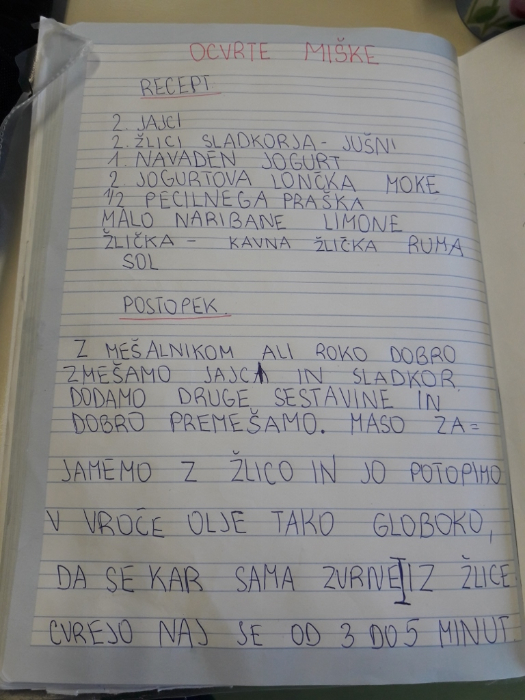 OCVRTE MIŠKE
RECEPT
2 JAJCI
2 ŽLICI SLADKORJA - JUŠNI
1 NAVADEN JOGURT
2 JOGURTOVA LONČKA MOKE
1/2 PECILNEGA PRAŠKA
MALO NARIBANE LIMONE
ŽLIČKA - KAVNA ŽLIČKA RUMA
SOL
POSTOPEK
Z MEŠALNIKOM ALI ROKO DOBRO
ZMEŠAMO JAJCA IN SLADKOR.
DODAMO DRUGE SESTAVINE IN
DOBRO PREMEŠAMO. MASO ZA=
JAMEMO Z ŽLICO IN JO POTOPIMO
V VROČE OLJE TAKO GLOBOKO,
DA SE KAR SAMA ZVRNE IZ ŽLICE
CVREJO NAJ SE OD 3 DO 5 MINUT